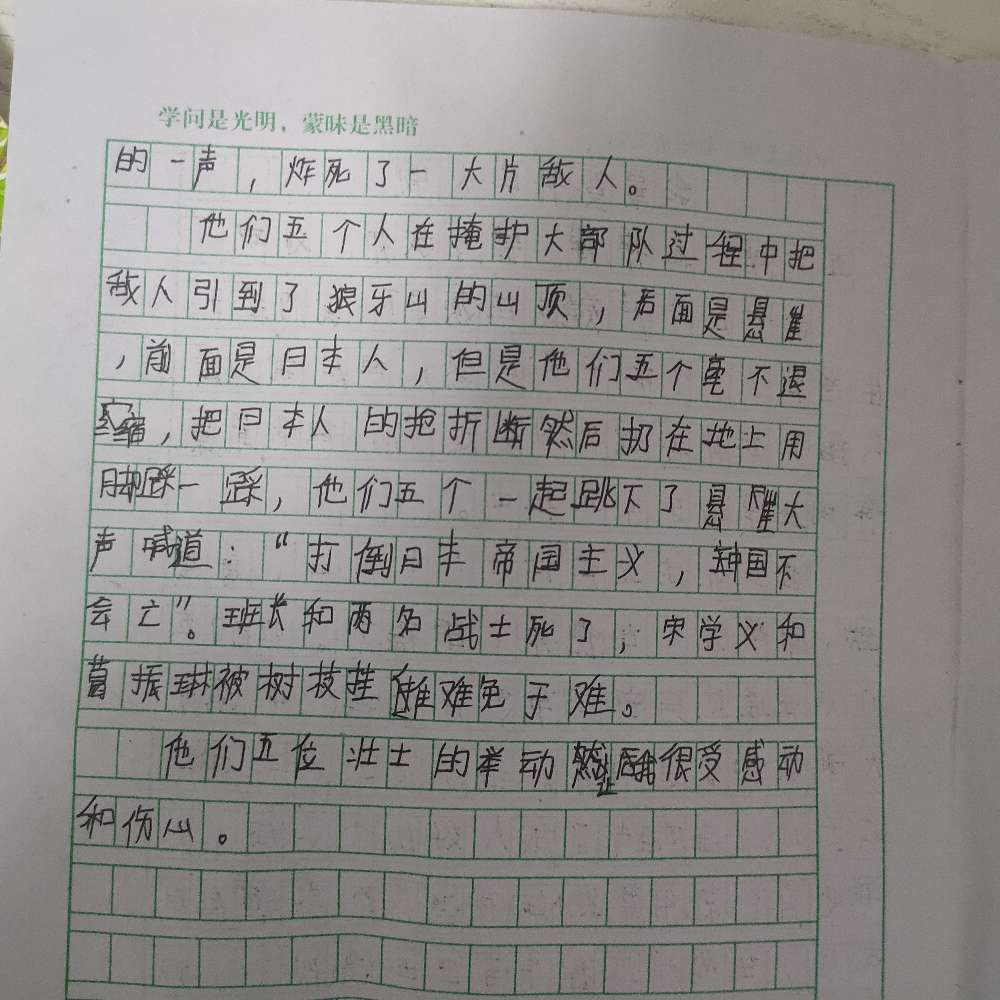 学问是光明，蒙昧是黑暗
的一声，炸死了一大片敌人。
他们五个人在掩护大部队过程中把
敌人引到了狼牙山的山顶，后面是悬崔
，前面是日本人，但是他们五个毫不退
缩，把日本人的抢折断然后扔在地上用
脚踩一踩，他们五个一起跳下了悬崔大
声喊道：“打倒日本帝国主义，中国不
会亡”。班长和两名战士死了，宋学义和
葛振琳被树枝挂难免于难。
他们五位壮士的举动让我很受感动
和伤心。